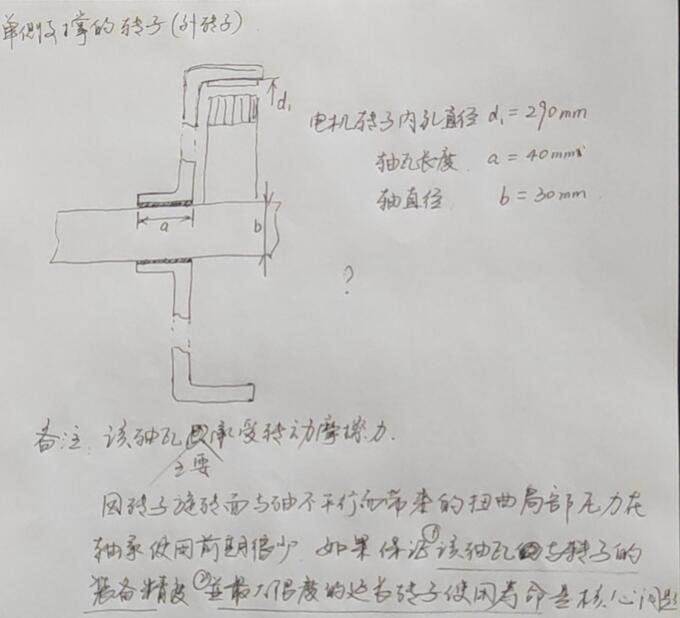 单侧支撑的转子(外转子)
d₁
电机转子内孔直径 d₁ = 290mm
轴瓦长度. a = 40mm
轴直径. b = 30mm
a
b
?
备注: 该轴瓦承受转动摩擦力.
主要
因转子旋转面与轴不平行而带来的扭曲局部压力在
轴承使用前期很少. 如果保证①该轴瓦与转子的
装备精度②并最大限度的延长转子使用寿命是核心问题